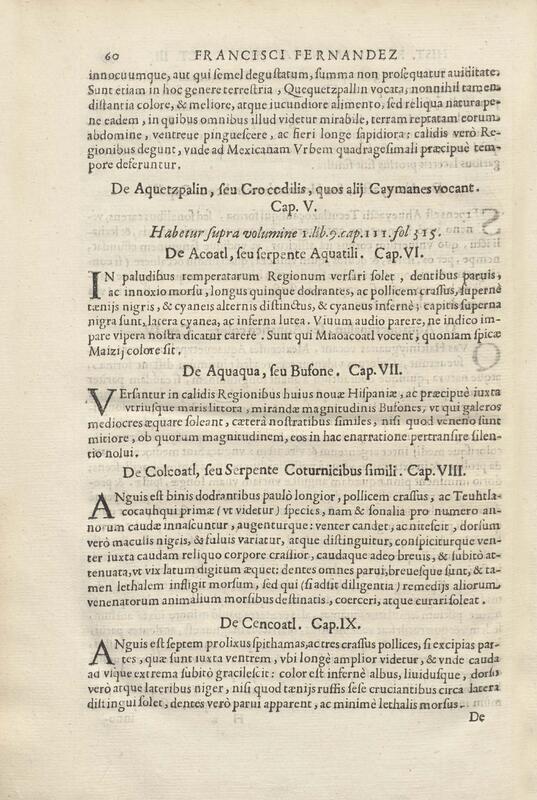 60 FRANCISCI FERNANDEZ.
innocuumque, aut qui semel degustatum, summa non prosequatur auiditate.
Sunt etiam in hoc genere terrestria, Quequetzpallin vocata, nonnihil tamen
distantia colore, & meliore, atque iucundiore alimento, sed reliqua natura pe-
ne eadem, in quibus omnibus illud videtur mirabile, terram reptatam eorum
abdomine, ventreue pinguescere, ac fieri longe sapidiora: calidis verò Re-
gionibus degunt, vnde ad Mexicanam Vrbem quadragesimali præcipuè tem-
pore deferuntur.
De Aquetzpalin, seu Crocodilis, quos alij Caymanes vocant.
Cap. V.
Habetur supra volumine 1. lib. 9. cap. 111. fol 315.
De Acoatl, seu serpente Aquatili. Cap. VI.
IN paludibus temperatarum Regionum versari solet, dentibus paruis,
ac innoxio morsu, longus quinque dodrantes, ac pollicem crassus, supernè
tænijs nigris, & cyaneis alternis distinctus, & cyaneus infernè; capitis superna
nigra sunt, lacera cyanea, ac inferna lutea. Viuum audio parere, ne indico im-
pare vipera nostra dicatur carere. Sunt qui Miaoacoatl vocent, quoniam spicæ
Maizij colore sit.
De Aquaqua, seu Bufone. Cap. VII.
VErsantur in calidis Regionibus huius nouæ Hispaniæ, ac præcipuè iuxta
vtriusque maris littora, mirandæ magnitudinis Bufones, vt qui galeros
mediocres æquare soleant, cæterà nostratibus similes, nisi quod veneno sunt
mitiore, ob quorum magnitudinem, eos in hac enarratione pertransire silen-
tio nolui.
De Colcoatl, seu Serpente Coturnicibus simili. Cap. VIII.
ANguis est binis dodrantibus paulò longior, pollicem crassus, ac Teuhtla-
cocauhqui primæ (vt videtur) species, nam & sonalia pro numero an-
norum caudæ innascuntur, augenturque: venter candet, ac nitescit, dorsum
verò maculis nigris, & fuluis variatur, atque distinguitur, conspiciturque ven-
ter iuxta caudam reliquo corpore crassior, caudaque adeo breuis, & subitò at-
tenuata, vt vix latum digitum æquet: dentes omnes parui, breuesque sunt, & ta-
men lethalem infligit morsum, sed qui (si adsit diligentia) remedijs aliorum
venenatorum animalium morsibus destinatis, coerceri, atque curari soleat.
De Cencoatl. Cap. IX.
ANguis est septem prolixus spithamas, ac tres crassus pollices, si excipias par-
tes, quæ sunt iuxta ventrem, vbi longè amplior videtur, & vnde cauda
ad vique extrema subitò gracilescit: color est infernè albus, liuidusque, dorso
verò atque lateribus niger, nisi quod tænijs ruffis sese cruciantibus circa latera
distingui solet, dentes verò parui apparent, ac minimè lethalis morsus.
De